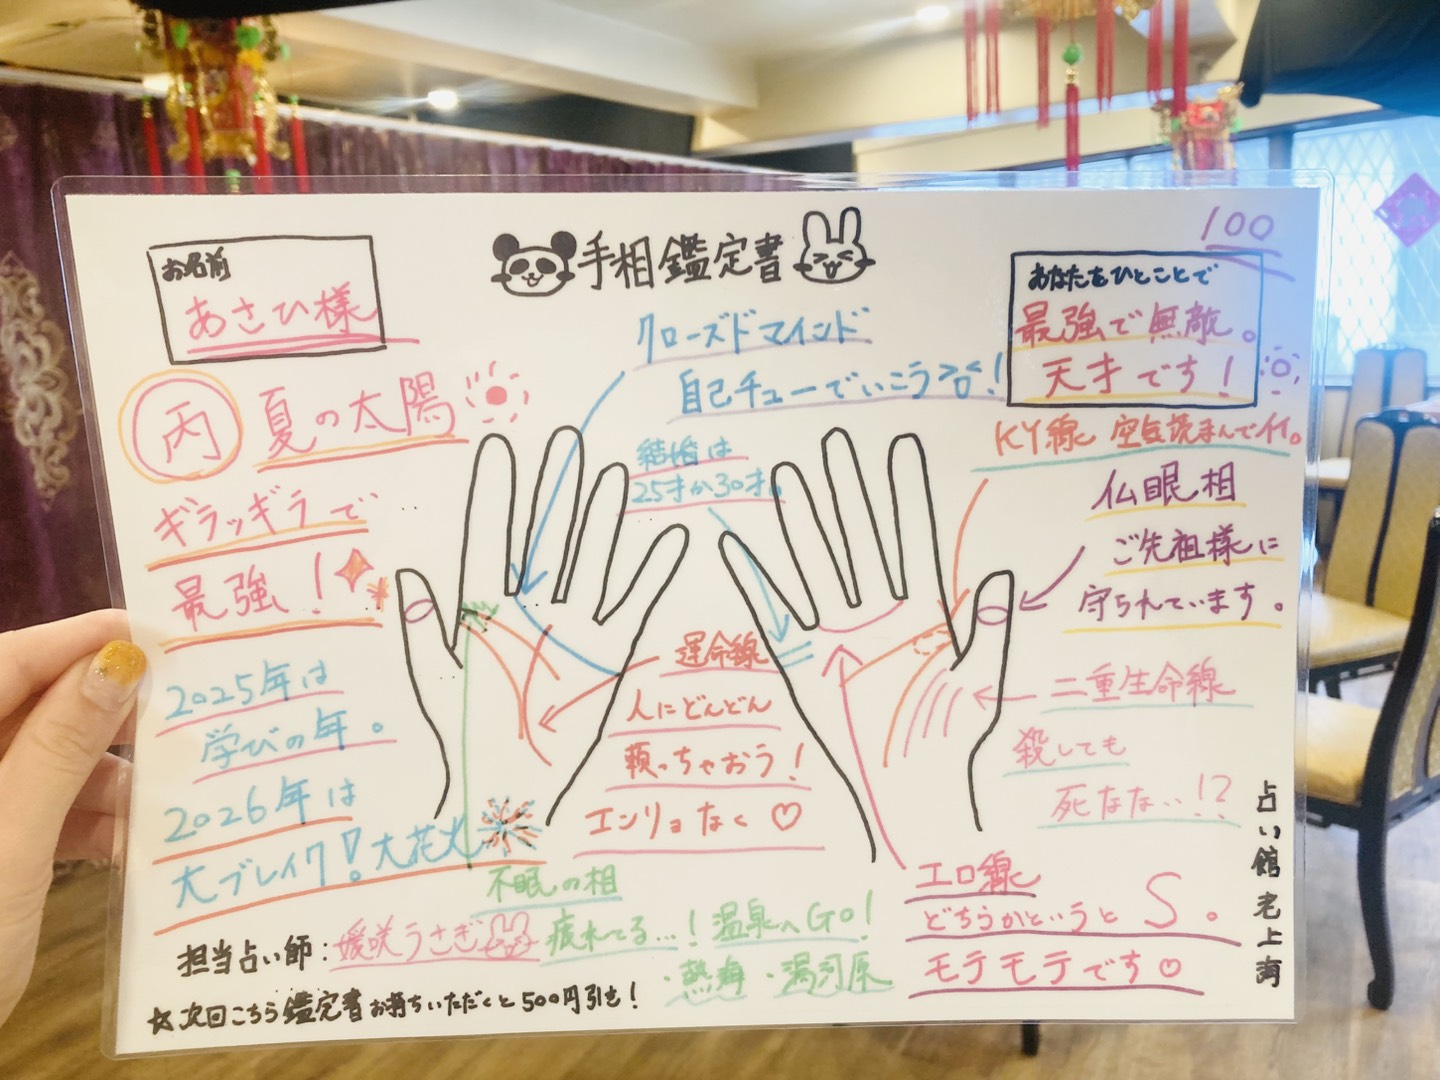 手相鑑定書
100
お名前
あさひ様
あなたをひとことで
最強で無敵。
天才です！
丙 夏の太陽
ギラッギラで
最強！
2025年は
学びの年。
2026年は
大ブレイク！大花火
クローズドマインド
自己チューでいこう！
結婚は
25才か30才。
KY線 空気読まんでイイ。
仏眼相
ご先祖様に
守られています。
運命線
人にどんどん
頼っちゃおう！
エンリョなく♡
二重生命線
殺しても
死なな…!?
エロ線
どちらかというとS。
モテモテです♡
不眠の相
疲れてる…！温泉へGO！
・熱海・湯河原
担当占い師：媛咲うさぎ
☆次回こちら鑑定書お持ちいただくと500円引き！
占い館 老上海